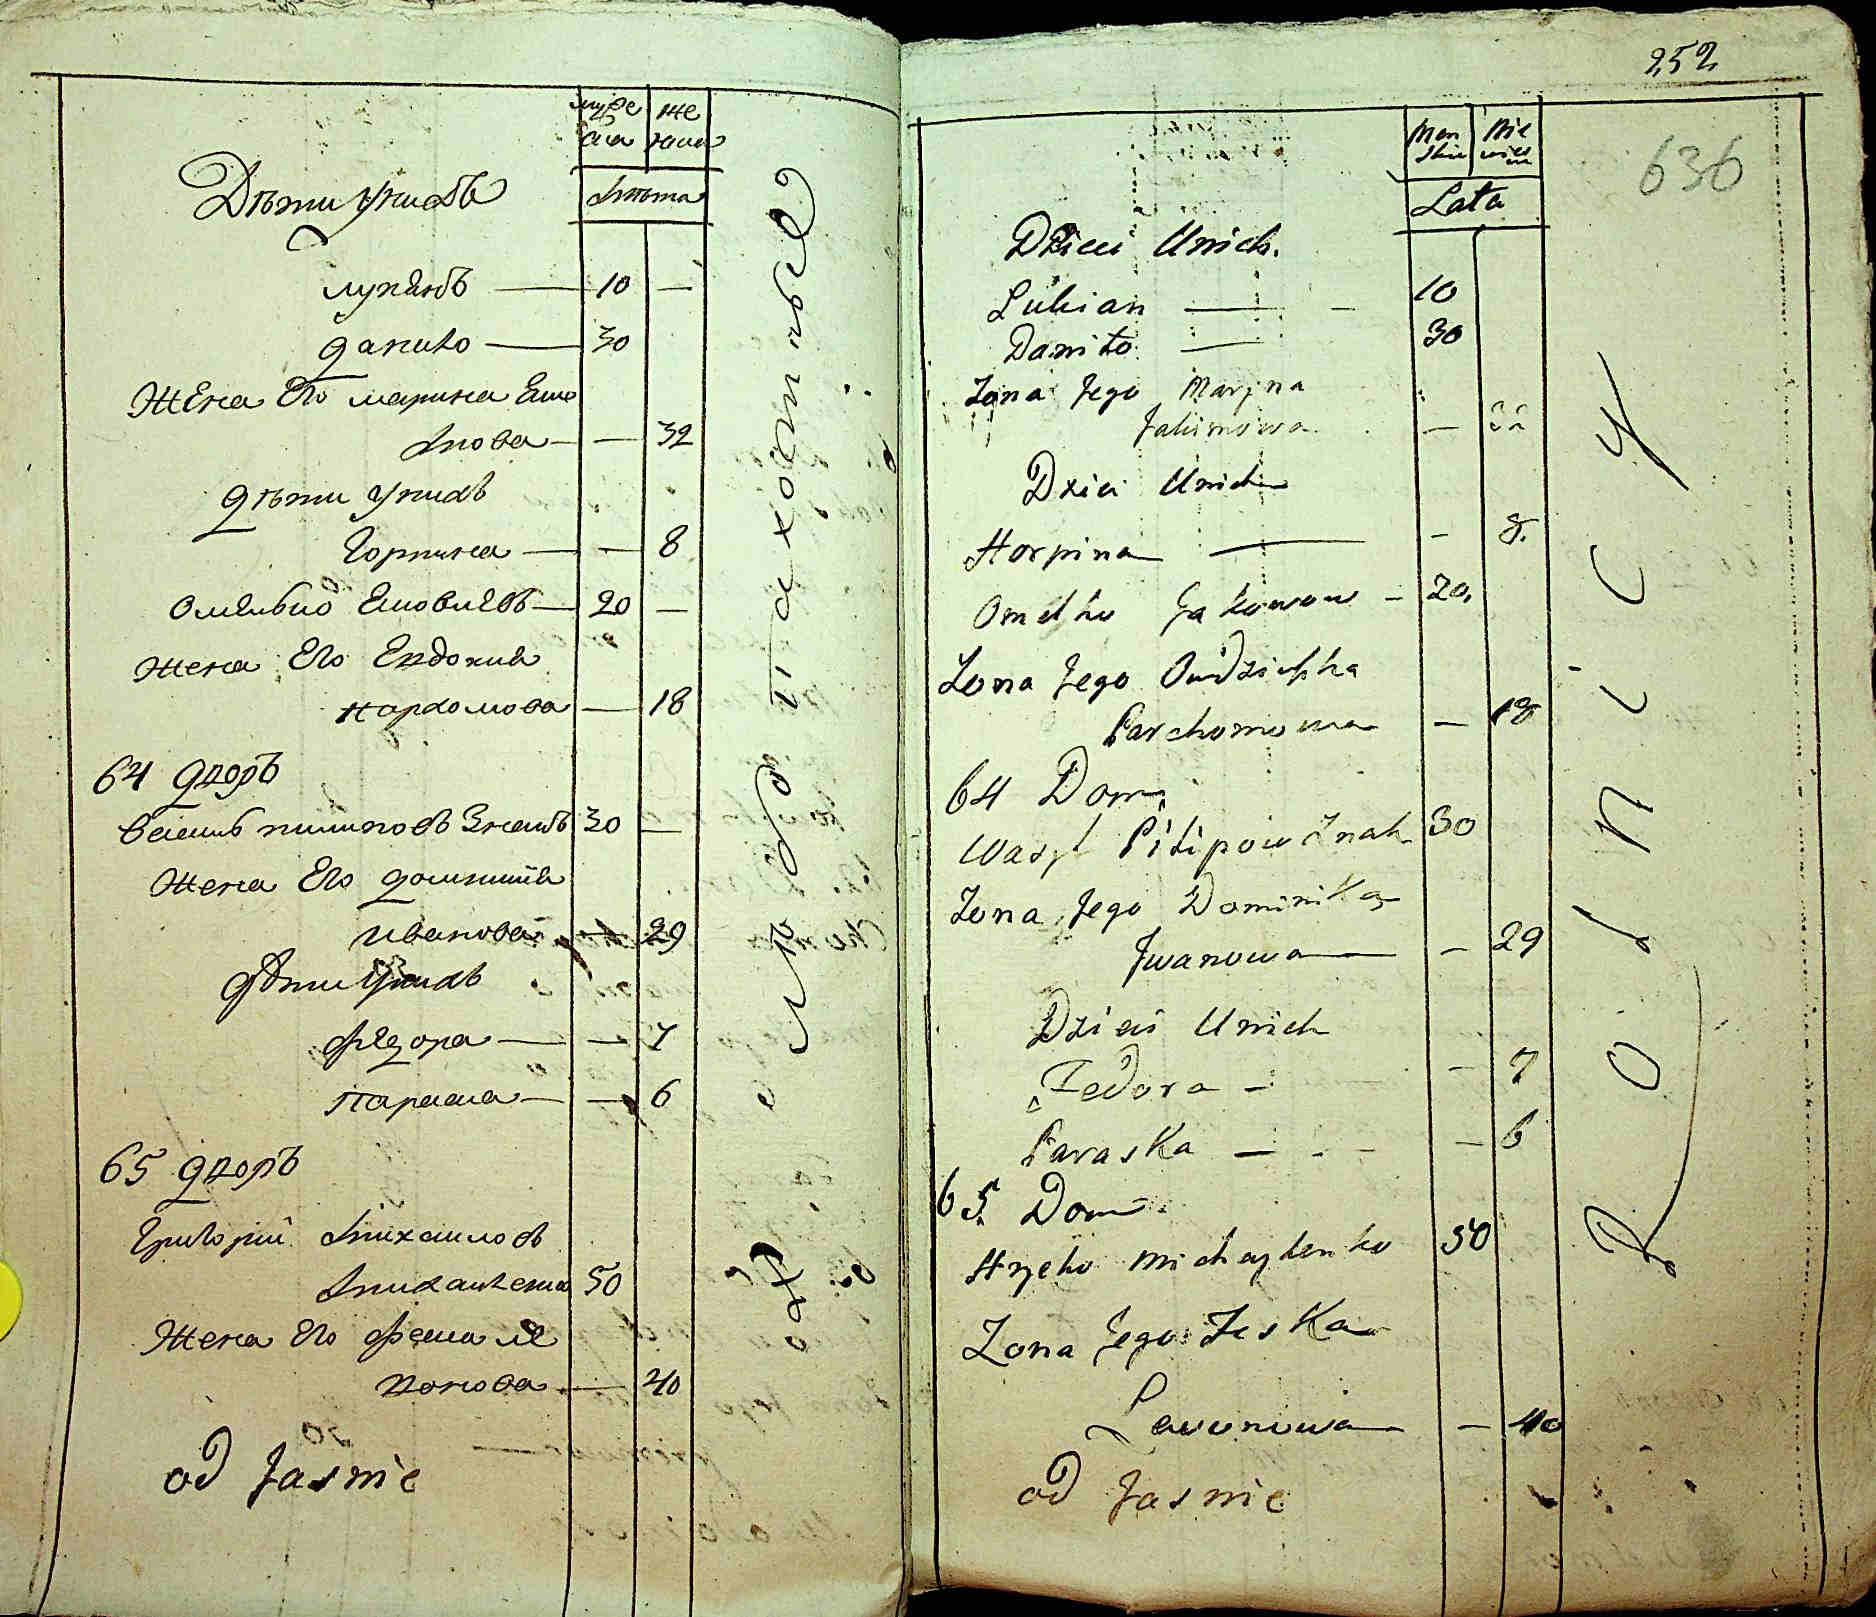 муже же
ска нска
Лѣта
Дѣти у нихъ
лукянъ — 10 —
данило — 30
Жена Его марина Еки
мова — — 32
дѣти у нихъ
горпина — — 8
Омелько Яковлевъ — 20 —
жена Его Евдокия
пархомова — 18
64 дворъ
василь пилиповъ Знакъ 30 —
Жена Его доминикия
иванова — 29
дѣти у нихъ
федора — — 7
параска — — 6
65 дворъ
григорий михайловъ
михайленко 50
Жена Его феска ле
вонова — 40
od Jasnie
пахотные
252
636
Men Nie
skie wies
Lata
Dzieci Unich.
Lukian — 10
Daniło — 30
Zona Jego Maryna
Jakimowa — 32
Dzieci Unich
Horpina — - 8.
Omelko Jakowow - 20.
Zona Jego Owdziejka
Parchomowa — 18
64 Dom
Wasyl Pilipow Znak 30
Zona Jego Dominika
Jwanowa — - 29
Dzieci Unich
Fedora - - 7
Paraska — - 6
65. Dom
Hryćko Michaylenko 50
Zona Jego Feska
Lewonowa — 40
od Jasnie
Rolnicy